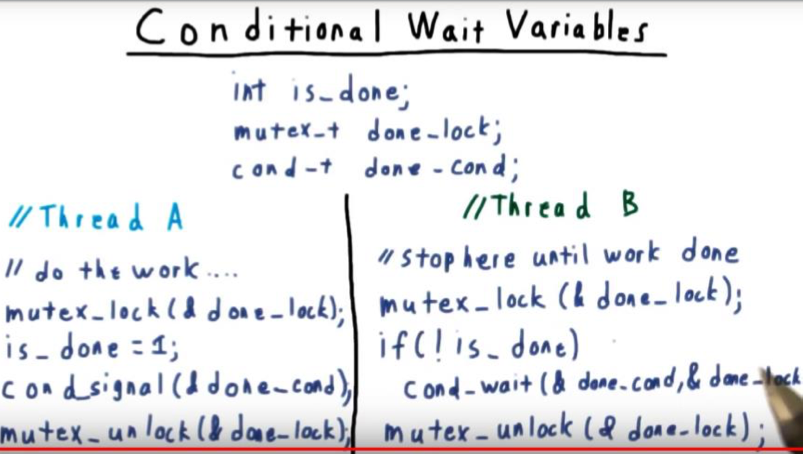 Conditional Wait Variables
int is_done;
mutex_t done_lock;
cond_t done_cond;
//Thread A
// do the work....
mutex_lock(& done_lock);
is_done = 1;
cond_signal(& done_cond);
mutex_unlock(& done_lock);
//Thread B
// stop here until work done
mutex_lock(& done_lock);
if(! is_done)
cond_wait(& done_cond, & done_lock
mutex_unlock(& done_lock);